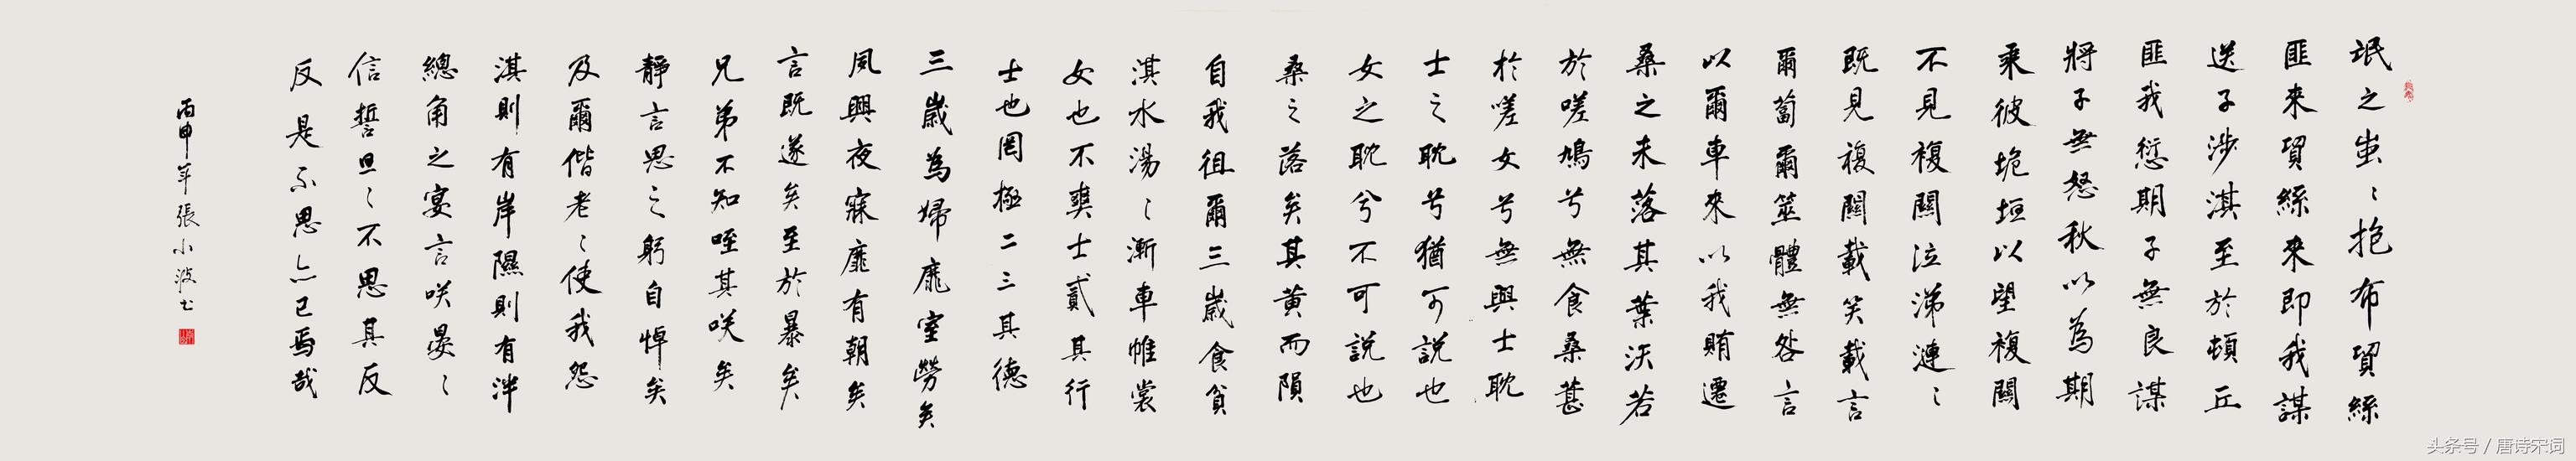 氓之蚩〻抱布貿絲
匪來貿絲來即我謀
送子涉淇至於頓丘
匪我愆期子無良謀
將子無怒秋以為期
乘彼垝垣以望複關
不見複關泣涕漣〻
既見複關載笑載言
爾蔔爾筮體無咎言
以爾車來以我賄遷
桑之未落其葉沃若
於嗟鳩兮無食桑葚
於嗟女兮無與士耽
士之耽兮猶可說也
女之耽兮不可說也
桑之落矣其黃而隕
自我徂爾三歲食貧
淇水湯〻漸車帷裳
女也不爽士貳其行
士也罔極二三其德
三歲為婦靡室勞矣
夙興夜寐靡有朝矣
言既遂矣至於暴矣
兄弟不知咥其咲矣
靜言思之躬自悼矣
及爾偕老〻使我怨
淇則有岸隰則有泮
總角之宴言咲晏〻
信誓旦〻不思其反
反是不思亦已焉哉
丙申年張小波書
头条号 / 唐诗宋词